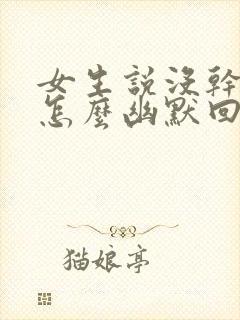 女生説沒幹
怎麼幽默回
猫娘亭